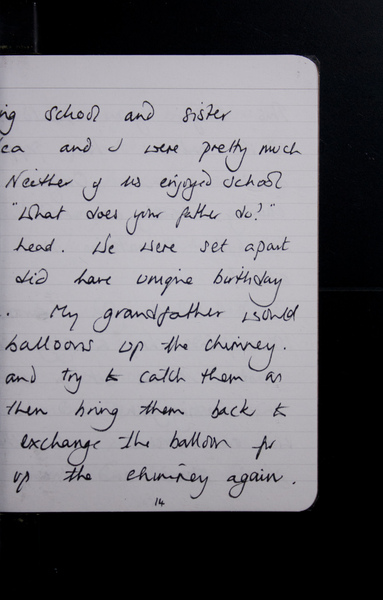 ing school and sister
ca and I were pretty much
Neither of us enjoyed school
"What does your father do?"
head. We were set apart
did have unique birthday
. My grandfather would
balloons up the chimney.
and try to catch them as
then bring them back to
exchange the balloon for
up the chimney again.
14